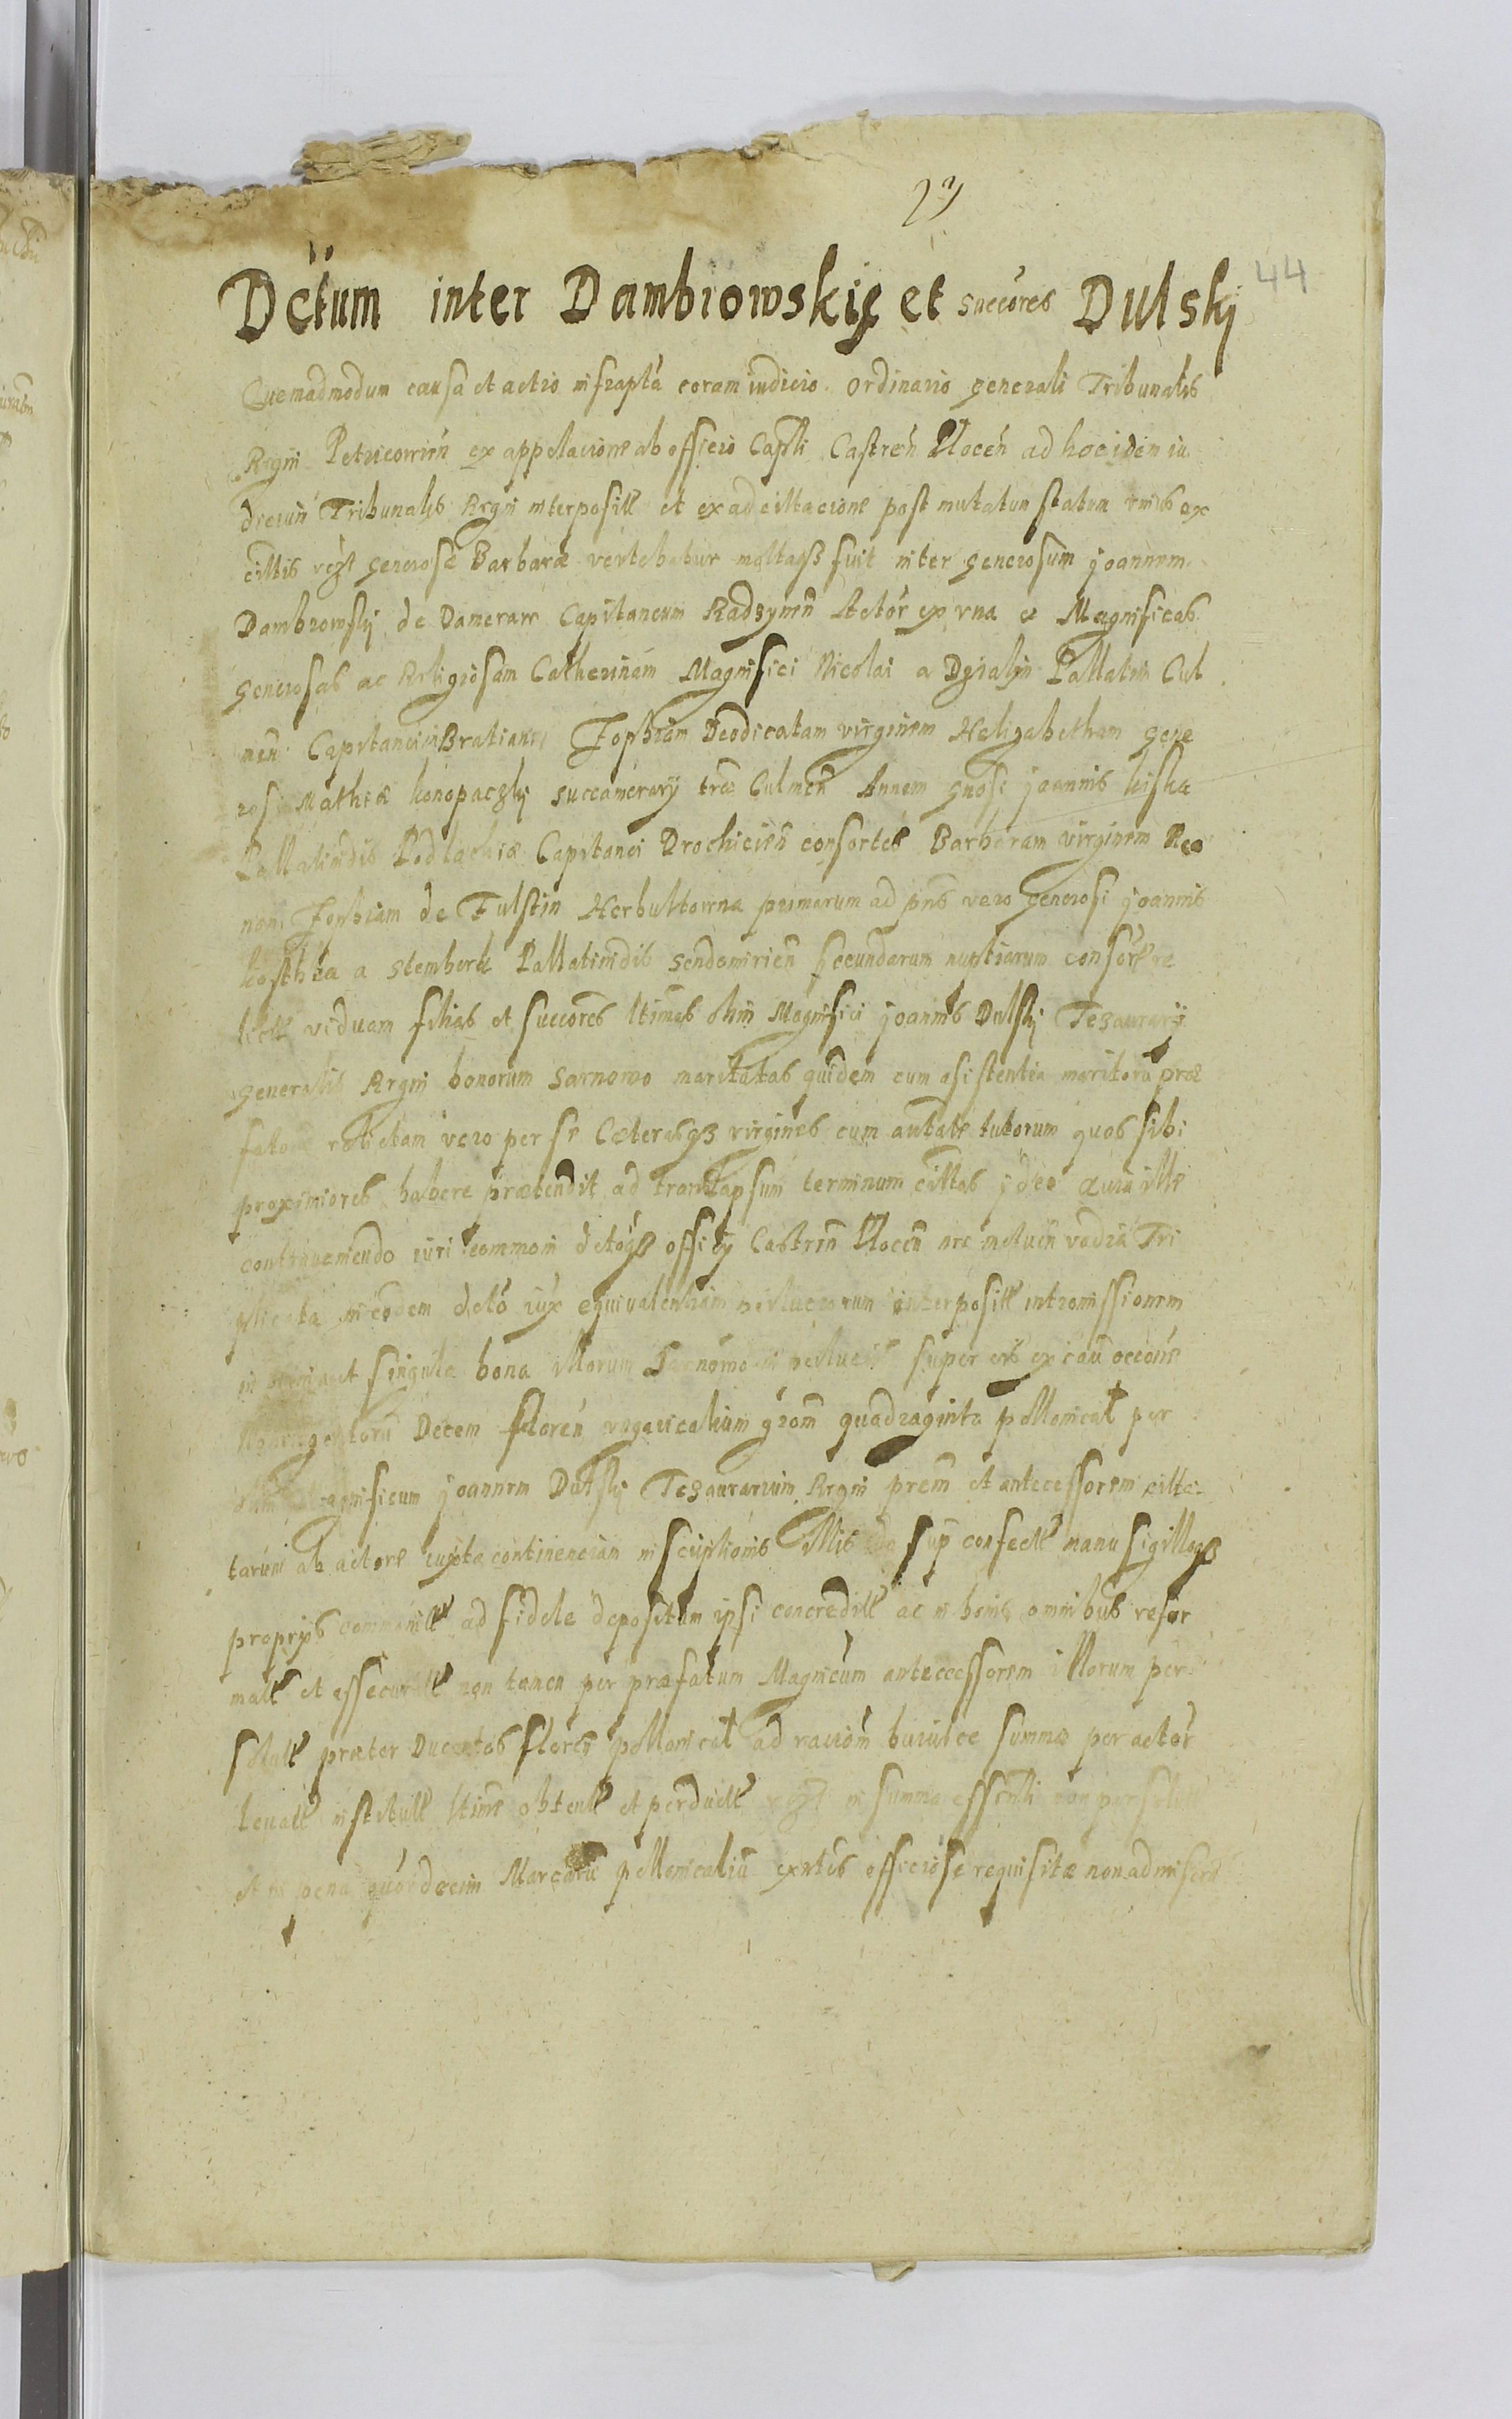 23
44
Dctum inter Dambrowskię et succores Dulskj
Quemadmodum causa et actio infrapta coram iudicio ordinario generali Tribunalis
Regni Petricovien ex appelacione ab officio Capli Castren Plocen ad hoc idem iu
dicium Tribunalis Regni interposill et ex adcittacione post mutatum statum unius ex
cittis Generose Barbaræ vertebatur fuit inter generosum joannem
Dambrowskj de Dameraw Capitaneum Radzynen Actor ex una et Magnificas
generosas ac Religiosam Catherinam Magnifici Nicolai a Dzialin Pallatin Cul
men Capitanei Bratianen Zophiam Deodicatam virginem Helizabetham gene
rosi Mathiæ konopaczkj succamerarij træ Culmen Annam gnosi joannis kiska
Pallatinidis Podlachiæ Capitanei Drohicien consortes Barbaram virginem Nec
non Zophiam de Fulstin Herbultowna primarum ad pns vero generosi joannis
kosthka a stemberk Pallatinidis sendomirien secundarum nuptiarum consorte re
lict viduam filias et succores ltimas olim Magnifici joannis Dulskj Tesaurarij
generalis Regni bonorum Sarnowo maritatas quidem cum asistentia maritorum præ
fator relictam vero per se Cæterasqz virgines cum autate tutorum quos sibi
proximiores habere prætendit ad translapsum terminum cittas ideo quia ille
contraveniendo iuri commoni offitij Castren Plocen nec metuen vadia Tri
plicata in eodem dcto iux equivalentiam interposill intromissionem
in omnia et singula bona illorum Sarnowo super eis ex
Decem floren ungaricalium grom quadraginta pollonical per
Magnificum joannem Dulskj Tesaurarium Regni prem et antecessorem citta
tarum ab actore iuxta continenciam inscriptionis illis confect manu sigilloqz
proprijs commonill ad fidele depositum ipsi concredill ac in bonis omnibus refor
mall et assecurall non tamen per præfatum Magcum antecessorem illorum per
solull præter Ducentos floren pollonical ad raciom huiusce summæ per actor
levall ltime obtenll et perduill in summa non
et in pena quordecim Marcaru pollonicaliu officiose requisitæ non admiserut